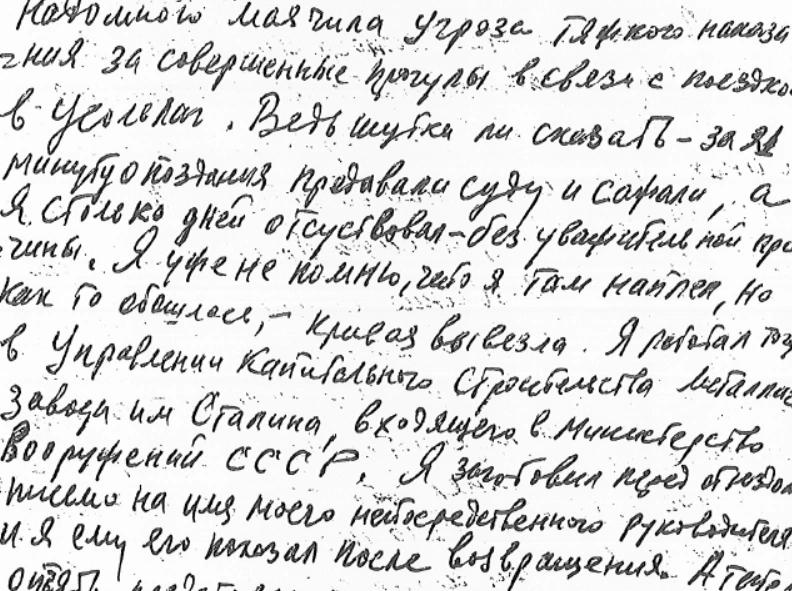 надо мною маячила угроза тяжкого наказа
ния за совершенные прогулы в связи с поездко
в Усольлаг. Ведь шутка ли сказать - за 21
минуту опоздания предавали суду и сажали, а
я столько дней отсуствовал - без уважительной при
чины. Я уже не помню, что я там наплел, но
как то обошлось, - кривая вывезла. Я работал тог
в Управлении Капитального Строительства Металлич
Завода им Сталина, входящего в Министерство
Вооружений СССР. Я заготовил перед отъездом
письмо на имя моего непосредственного руководителя
и я ему его показал после возвращения. А тепе
опять